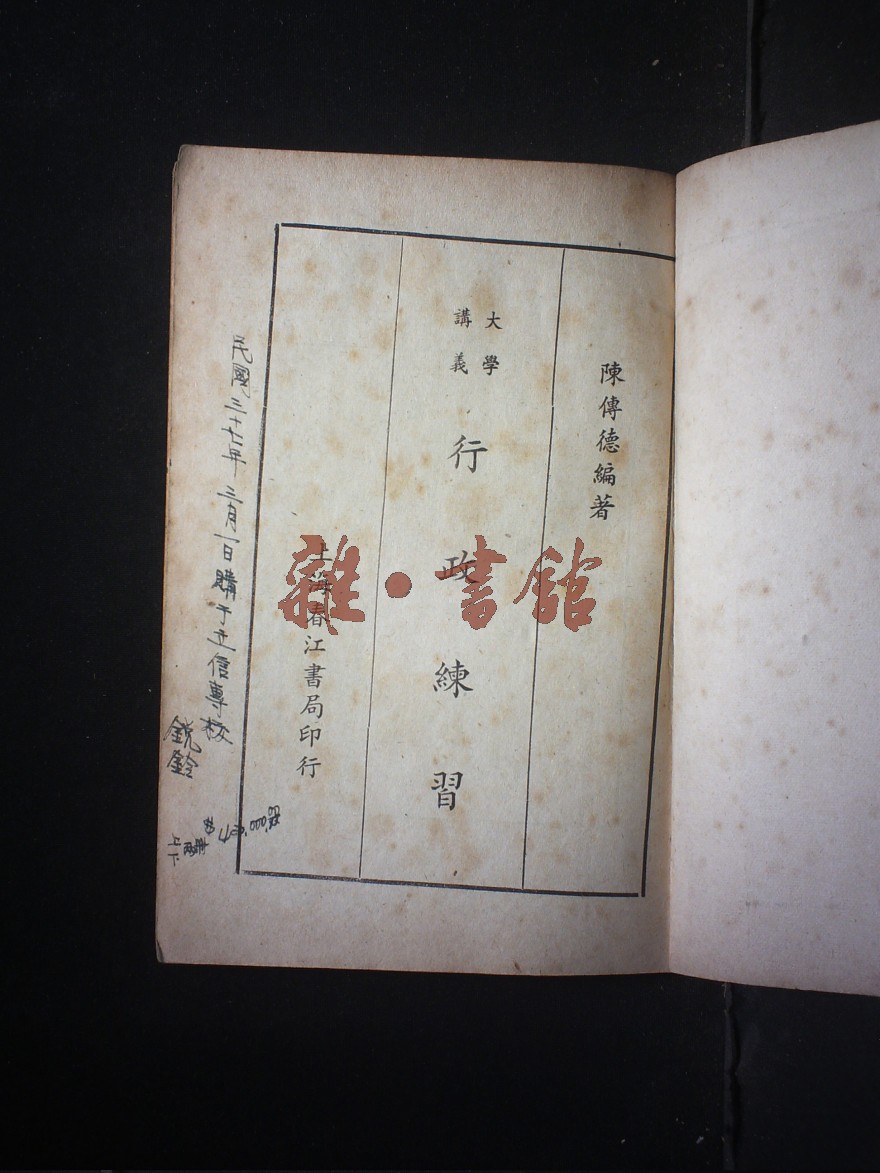 陳傳德編著
大學
講義
行政練習
上海春江書局印行
民國三十七年 三月一日購于立信專校
銳鈴
上下兩冊
雜·書館